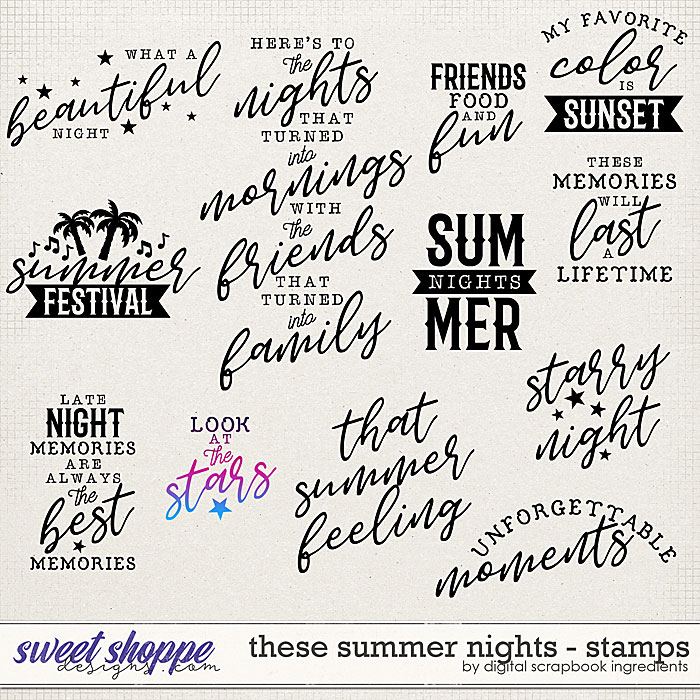 WHAT A
beautiful
NIGHT
HERE'S TO
the
nights
THAT
TURNED
into
mornings
WITH
the
friends
THAT
TURNED
into
family
FRIENDS
FOOD
AND
fun
MY FAVORITE
color
IS
SUNSET
summer
FESTIVAL
SUM
NIGHTS
MER
THESE
MEMORIES
WILL
last
A
LIFETIME
LATE
NIGHT
MEMORIES
ARE
ALWAYS
the
best
MEMORIES
LOOK
AT
the
stars
that
summer
feeling
starry
night
UNFORGETTABLE
moments
sweet shoppe
designs.com
these summer nights - stamps
by digital scrapbook ingredients